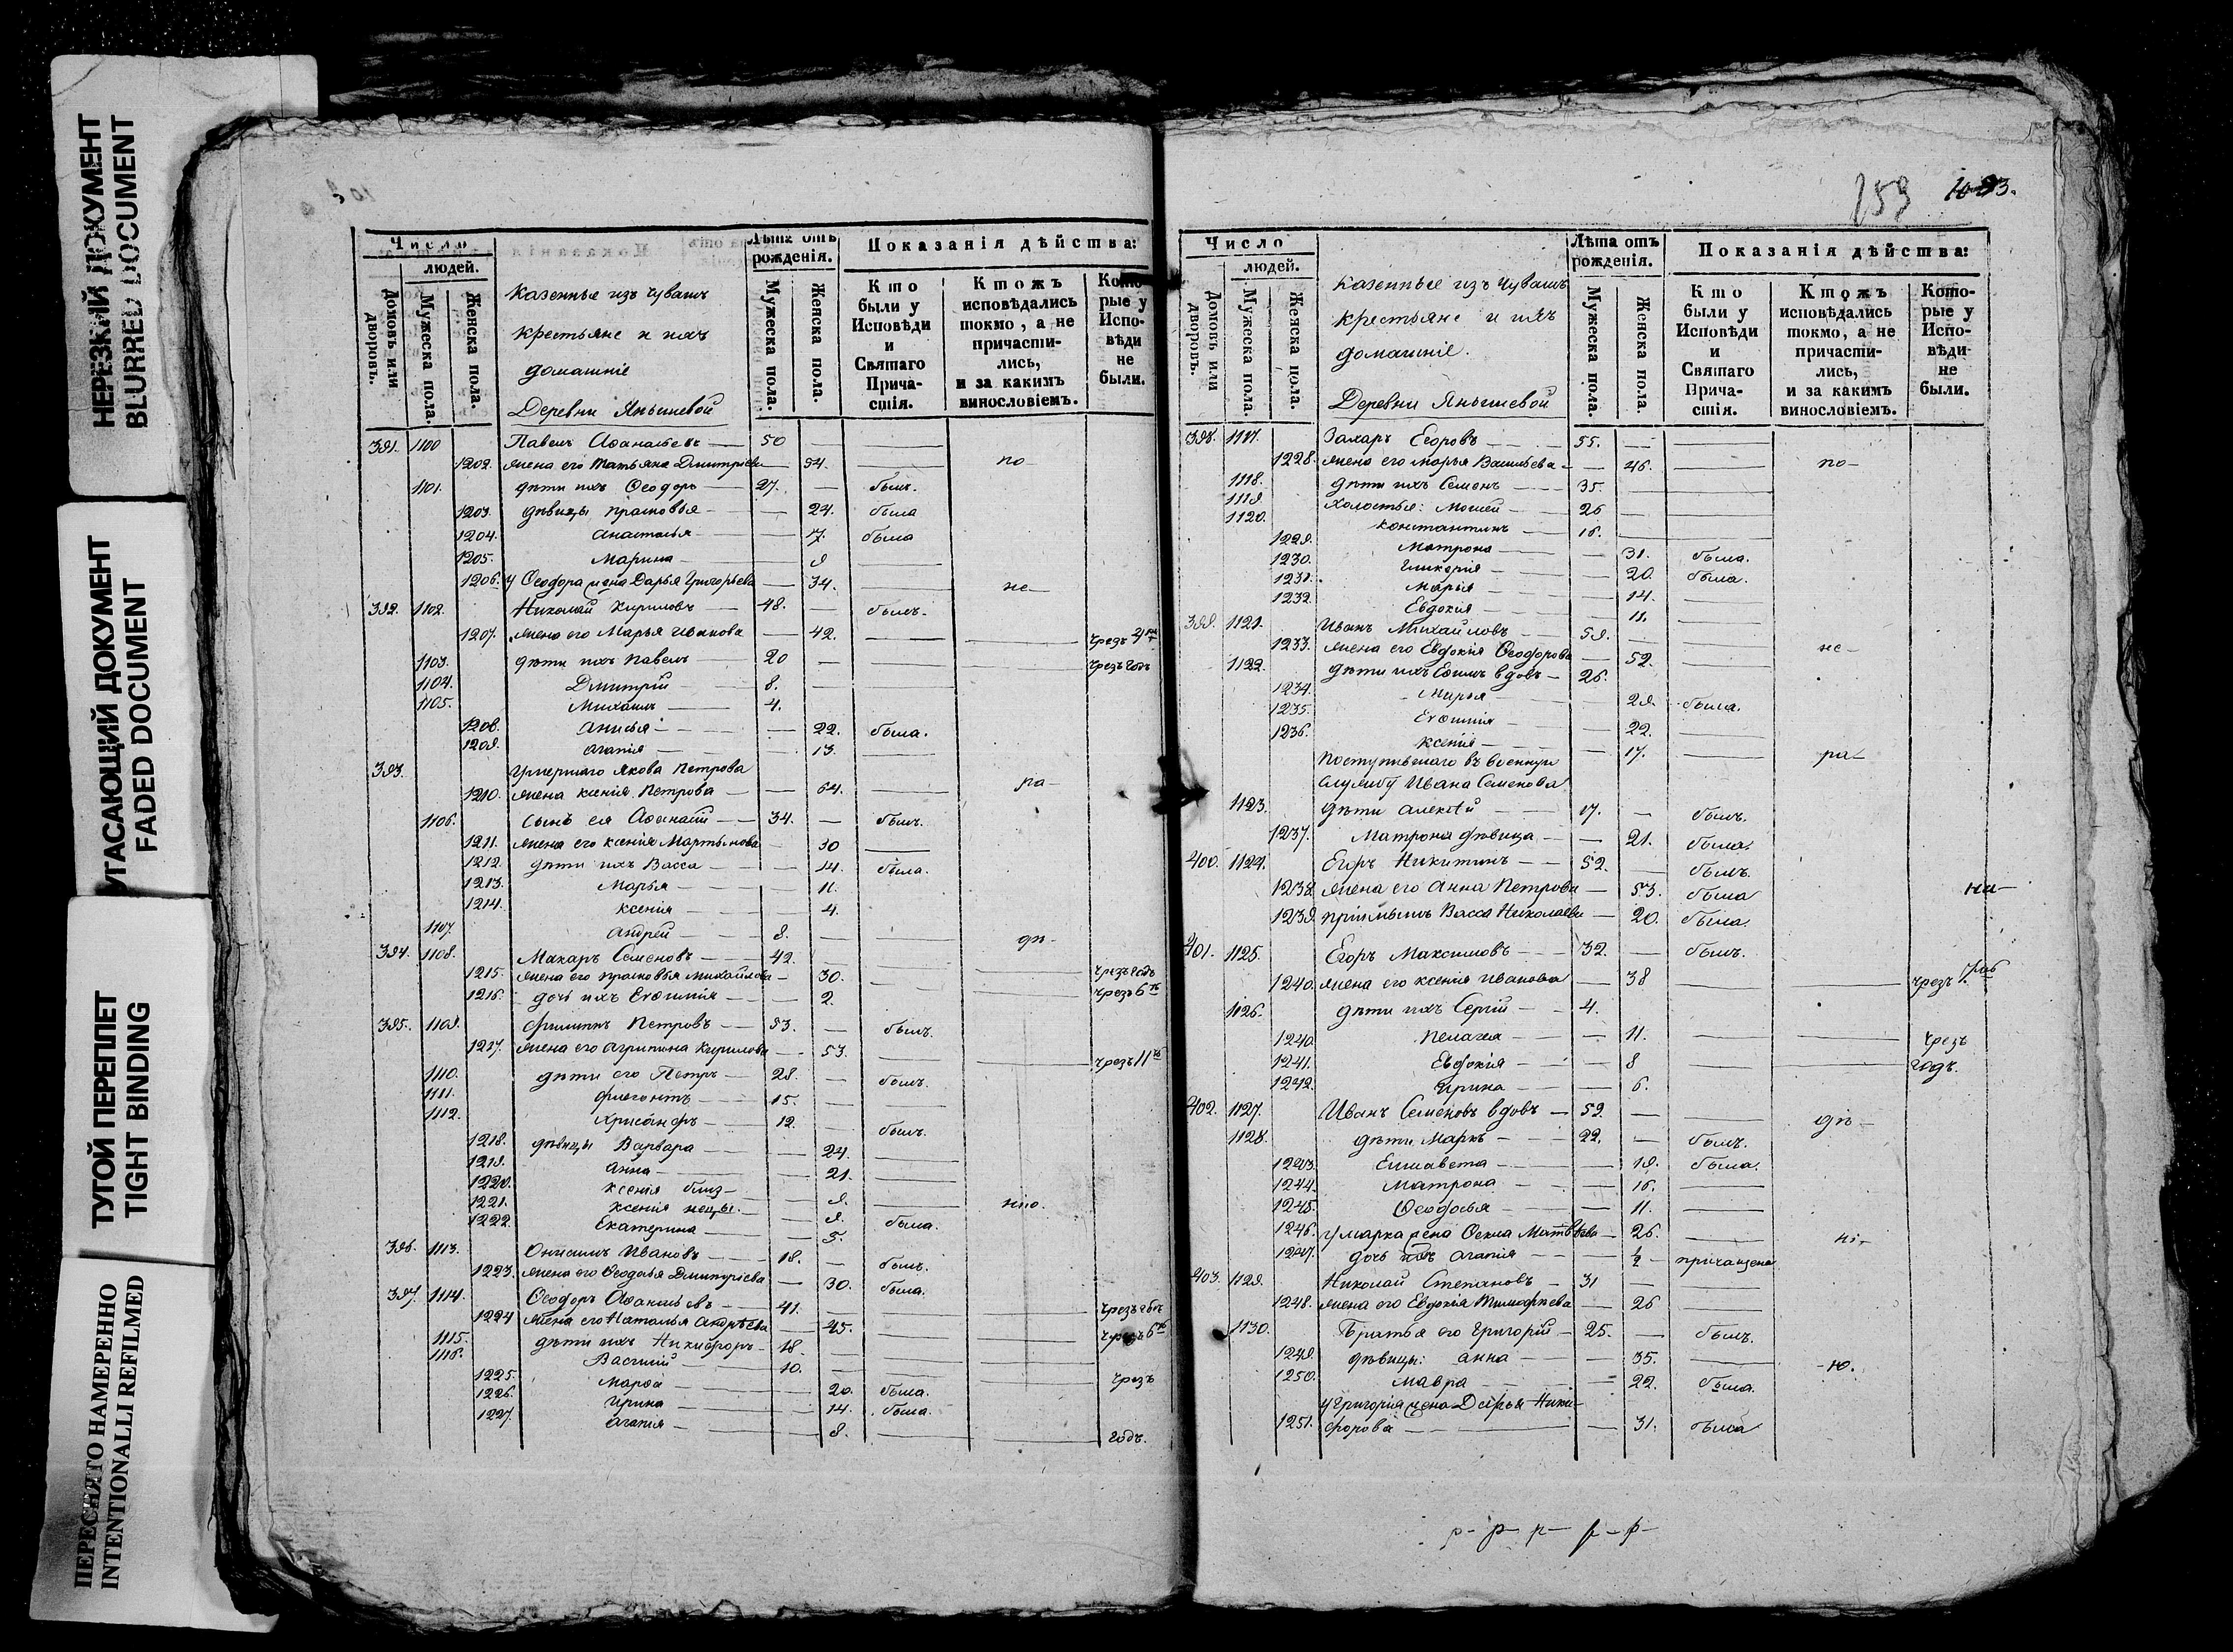 НЕРЕЗКИЙ ДОКУМЕНТ
BLURRED DOCUMENT
УГАСАЮЩИЙ ДОКУМЕНТ
FADED DOCUMENT
ТУГОЙ ПЕРЕПЛЕТ
TIGHT BINDING
ПЕРЕСНЯТО НАМЕРЕННО
INTENTIONALLI REFILMED
Число
людей.
Домовъ или дворовъ.
Мужеска пола.
Женска пола.
Казенные изъ чувашъ
крестьяне и ихъ
домашніе
Деревни Янышевой
Лѣта отъ рожденія.
Мужеска пола.
Женска пола.
Показанія дѣйства:
Кто были у Исповѣди и Святаго Прича-стія.
Ктожъ исповѣдались токмо, а не причасти-лись, и за какимъ винословіемъ.
Кото-рые у Испо-вѣди не были.
391. 1100 Павелъ Аѳанасьевъ — 50 —
1202. жена его Татьяна Дмитріева — 54. — по-
1101. дѣти ихъ Ѳеодоръ — 27. — былъ.
1203. дѣвицы Прасковья — — 24. была
1204. Анастасья — — 17. была
1205. Марина — — 9 —
1206. у Ѳеодора жена Дарья Григорьева — 34. — не-
392. 1102. Николай Кириловъ — 48. — былъ.
1207. жена его Марья Иванова — 42. — — чрезъ 4
1103. дѣти ихъ Павелъ — 20 — — чрезъ годъ
1104. Дмитрій — 8. —
1105. Михаилъ — 4.
1208. Анисья — — 22. была.
1209. Агапія — — 13. —
393. Умершаго Якова Петрова
1210. жена Ксенія Петрова — — 64. — ра-
1106. сынъ ея Аѳанасій — 34. — былъ.
1211. жена его Ксенія Мартынова — 30 —
1212. дѣти ихъ Васса — — 14. была.
1213. Марья — — 11.
1214. Ксенія — — 4.
1107. Андрей — 8. — — дѣ-
394. 1108. Макаръ Семеновъ — 42. — — чрезъ годъ
1215. жена его Прасковья Михайлова — 30. — — чрезъ 6
1216. дочь ихъ Евѳимія — — 2.
395. 1109. Филиппъ Петровъ — 53. — былъ.
1217. жена его Агрипина Кирилова — 53. — — чрезъ 11
1110. дѣти его Петръ — 28. — былъ.
1111. Флегонтъ — 15. —
1112. Хрисанфъ — 12. — былъ.
1218. дѣвицы Варвара — — 24. —
1219. Анна — — 21. —
1220. Ксенія близ-
1221. Ксенія нецы. — — 9. — нію.
1222. Екатерина — — 5. была.
396. 1113. Онисимъ Ивановъ — 18. — былъ.
1223. жена его Ѳеодосья Дмитріева — 30. была.
397. 1114. Ѳеодоръ Аѳанасьевъ — 41. —
1224 жена его Наталья Андрѣева — 45. — — чрезъ 6
1115. дѣти ихъ Никифоръ — 18. —
1116. Василій — 10. — — чрезъ
1225. Марѳа — — 20. была.
1226. Ирина — — 14. была.
1227. Агапія — — 8. — — годъ.
153 1093.
Число
людей.
Домовъ или дворовъ.
Мужеска пола.
Женска пола.
Казенные изъ чувашъ
крестьяне и ихъ
домашніе.
Деревни Янышевой
Лѣта отъ рожденія.
Мужеска пола.
Женска пола.
Показанія дѣйства:
Кто были у Исповѣди и Святаго Прича-стія.
Ктожъ исповѣдались токмо, а не причасти-лись, и за какимъ винословіемъ.
Кото-рые у Испо-вѣди не были.
398. 1117. Захаръ Егоровъ — 55. —
1228. жена его Марья Васильева — — 46. — по-
1118. дѣти ихъ Семенъ — 35. —
1119. Холостые: Мосей — 26 —
1120. Константинъ — 16. —
1229. Матрона — — 31. была.
1230. Гликерія — — 20. была.
1231. Марья — — 14. —
1232. Евдокія — — 11. —
399. 1121. Иванъ Михайловъ — 59. —
1233. жена его Евдокія Ѳеодорова — 52. — не-
1122. дѣти ихъ Ефимъ вдовъ — 26. —
1234. Марья — — 29. была.
1235. Евѳимія — — 22. —
1236. Ксенія — — 17. — ра-
Поступившаго въ военную
службу Ивана Семенова
1123. дѣти Алексѣй — 17. — былъ.
1237. Матрона дѣвица — — 21. была.
400. 1124. Егоръ Никитинъ — 52. — былъ.
1238. жена его Анна Петрова — 53. была на-
1239. пріимышъ Васса Николаева — 20. была.
401. 1125. Егоръ Максимовъ — 32. — былъ.
1240. жена его Ксенія Иванова — 38 — — чрезъ 7
1126. дѣти ихъ Сергій — 4.
1240. Пелагея — — 11. — — чрезъ
1241. Евдокія — — 8 — — годъ.
1242. Ирина — — 6.
402. 1127. Иванъ Семеновъ вдовъ — 52. — — дѣ-
1128. дѣти Маркъ — 22. — былъ.
1243. Елисавета — — 19. была.
1244. Матрона — — 16. —
1245. Ѳеодосья — — 11. —
1246. у Марка жена Ѳекла Матвѣева — 26. — ні-
1247. дочь ихъ Агапія — — ½ — причащена
403. 1129. Николай Степановъ — 31 — —
1248. жена его Евдокія Тимофѣева — 26 —
1130. Братья его Григорій — 25. — былъ.
1249. дѣвицы: Анна — — 35. — -ю.
1250. Мавра — — 22. была.
у Григорія жена Дарья Ники-
1251. форова — — 31. была
р- р- р- р- р-